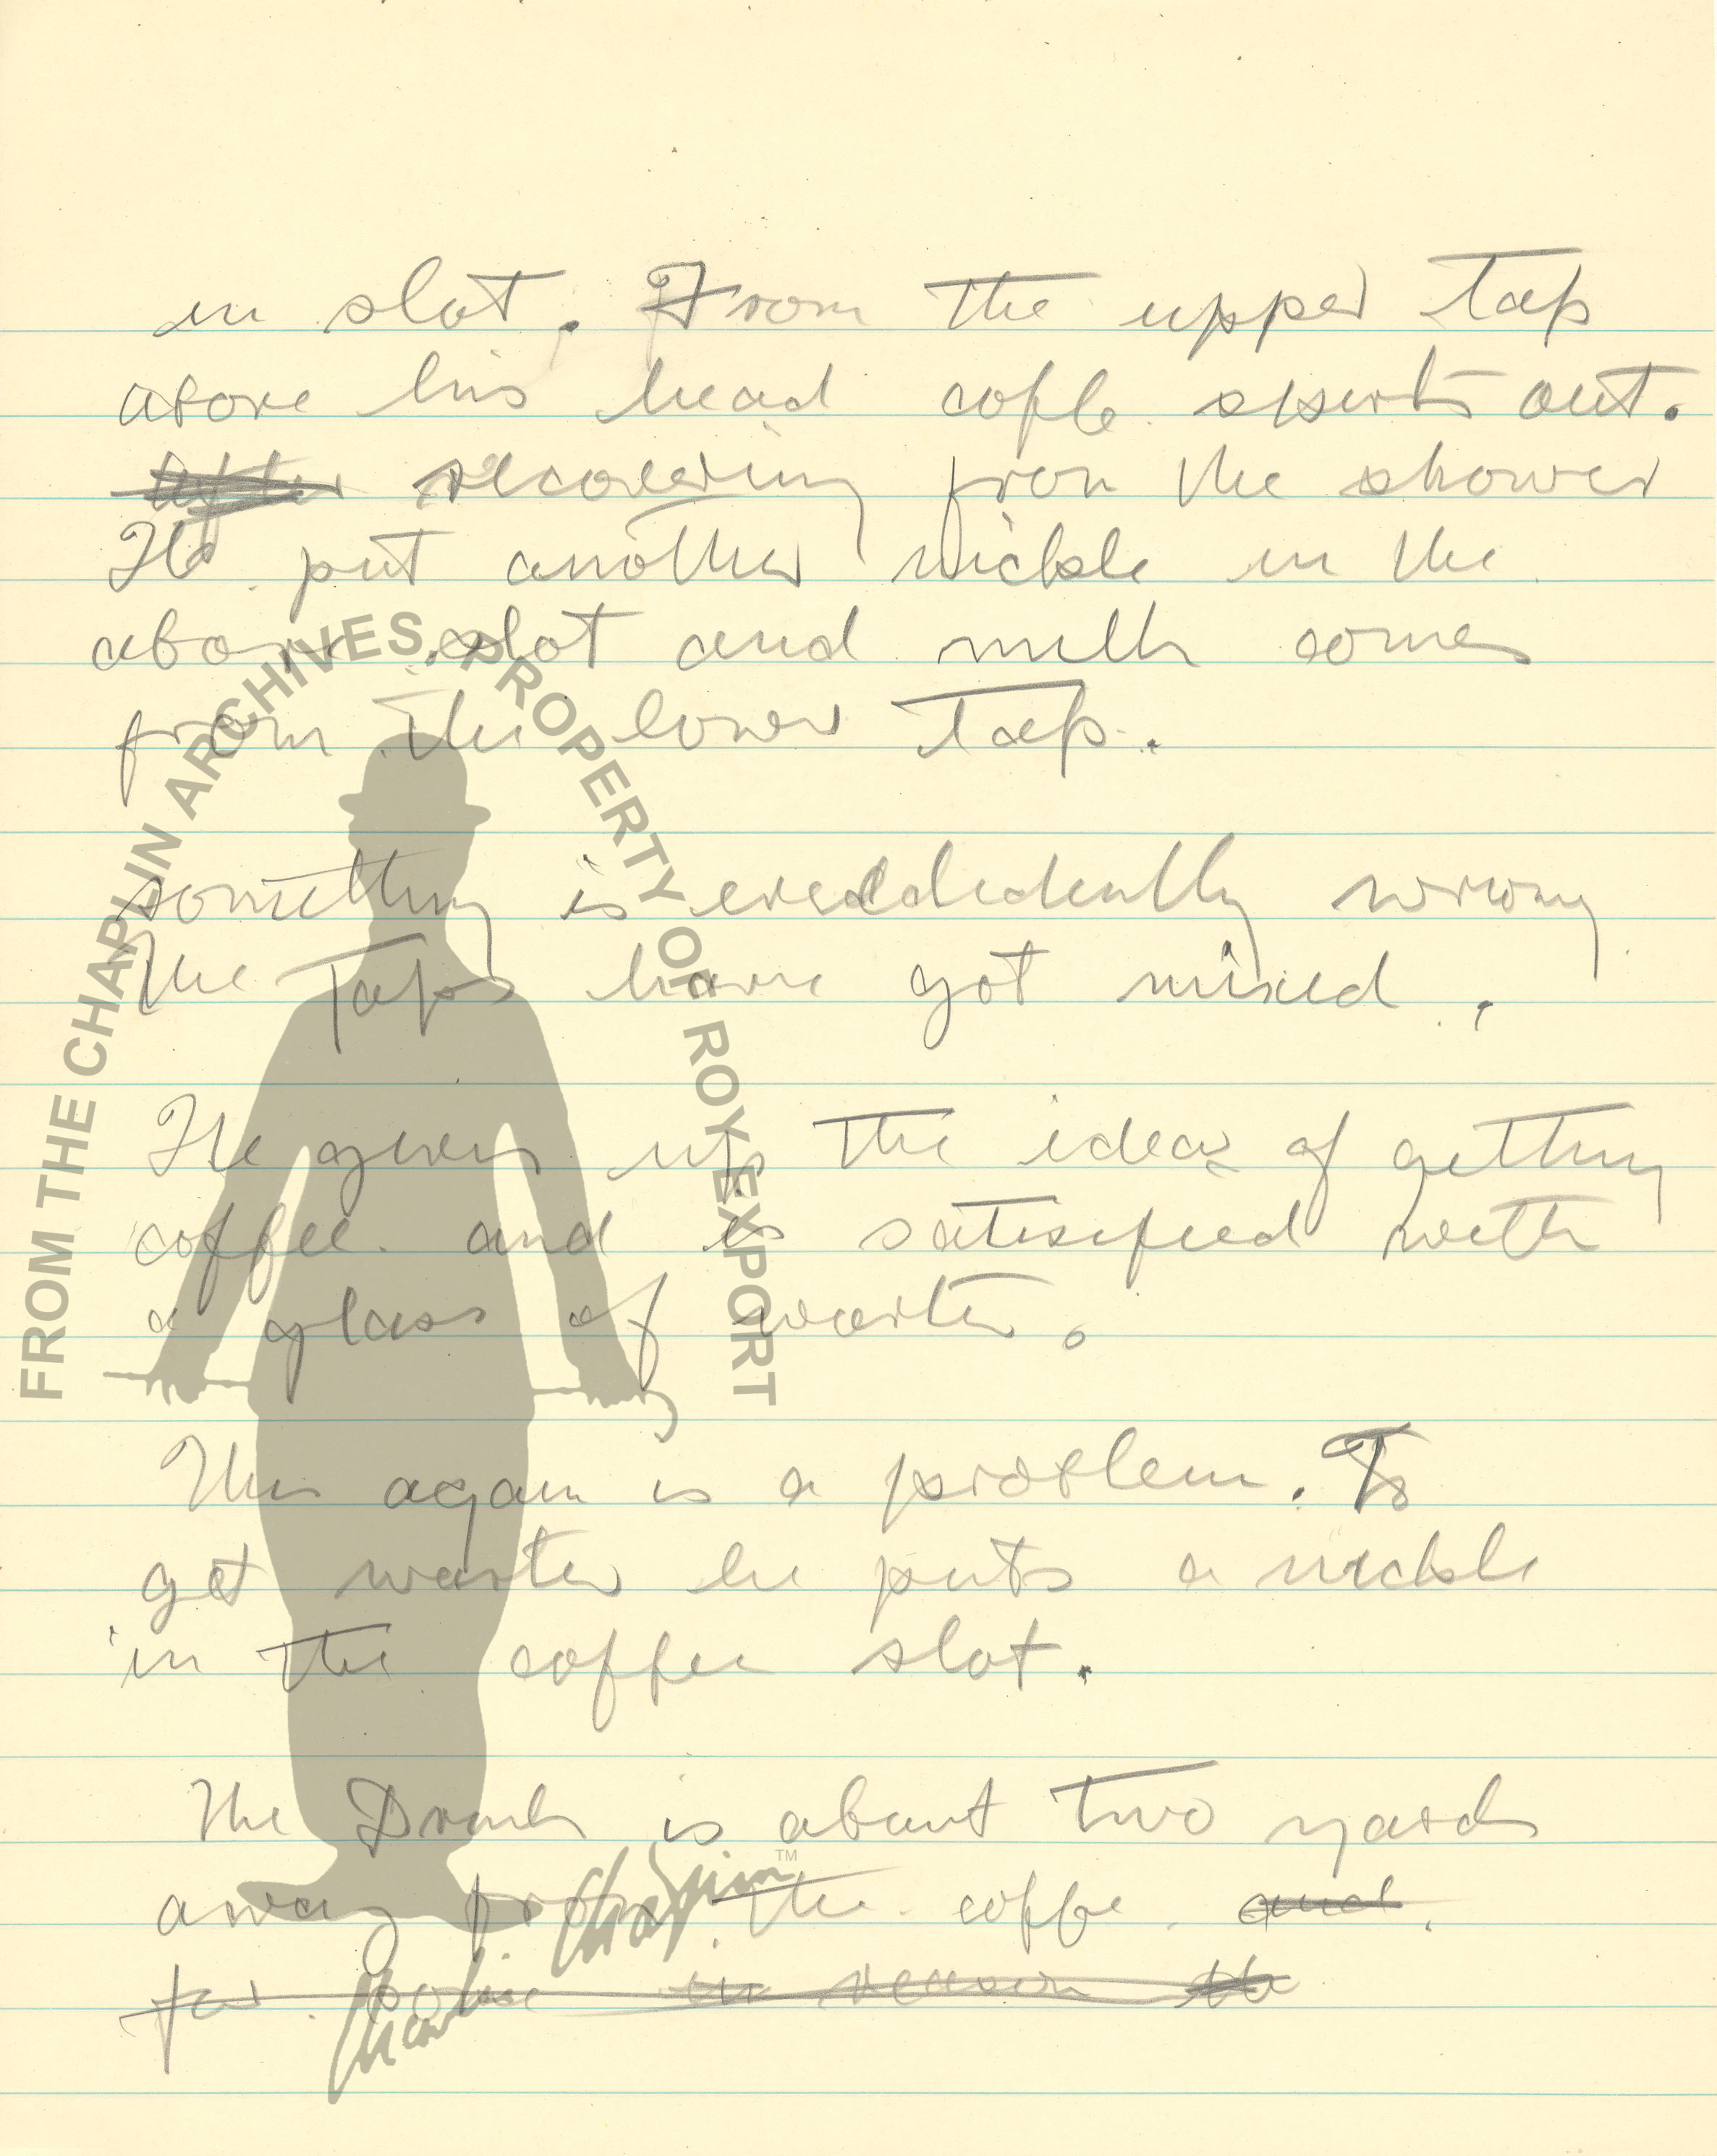 in slot. From the upper tap
above his head coffe sperts out.
After recovering from the shower
He put another nickle in the
above slot and milk comes
from the lower tap.
something is eveddedently wrong
The Taps have got mixed.
He gives up the idea of getting
coffee and is satisified with
a glass of warter.
This again is a problem. To
get warter he puts a nickle
in the coffee slot.
The is about two yards
away from the coffe and.
for in reason the
FROM THE CHAPLIN ARCHIVES. PROPERTY OF ROY EXPORT
Charlie Chaplin™